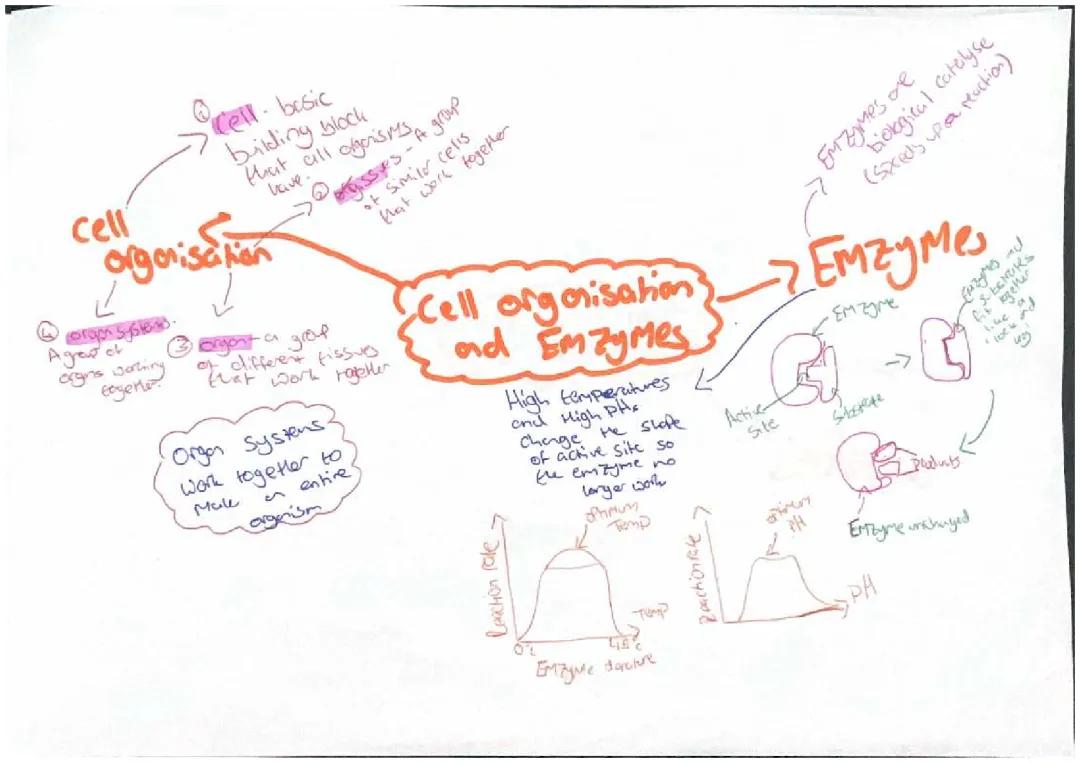 Cell organisation
and Emzymes
Cell
organisation
① Cell - basic
building block
that all organisms
have.
② - A group
of similar cells
that work together
③ organ - a group
of different tissues
that work together
④ organ systems.
A group of
organs working
together.
Organ systems
work together to
make an entire
organism
Emzymes
Enzymes are
biological catalyse
(speeds up a reaction)
Emzyme
Active
site
Substrate
Enzymes and
substrates
fit together
like a
lock and
key
Products
Emzyme unchanged
High temperatures
and High PHs
change the shape
of active site so
the emzyme no
longer work
Reaction rate
optimum
Temp
Temp
0°c
45°c
Emzyme
Reaction rate
optimum
PH
PH